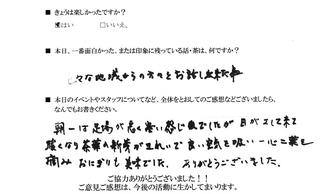 ■ きょうは楽しかったですか？
■はい　□いいえ、
■ 本日、一番面白かった、または印象に残っている話・茶は、何ですか？
々な地域からの方々とお話し出来た事
■ 本日のイベントやスタッフについてなど、全体をとおしてのご感想などございましたら、
なんでもお書きください。
朝一は足場が悪く寒い感じ でしたが 日がさして来て
暖くなり茶葉の新芽がきれいで良い空気を吸い一心に葉を
摘み おにぎりも美味でした。 ありがとうございました。
ご協力ありがとうございました！！
ご意見ご感想は、今後の活動に生かしてまいります。